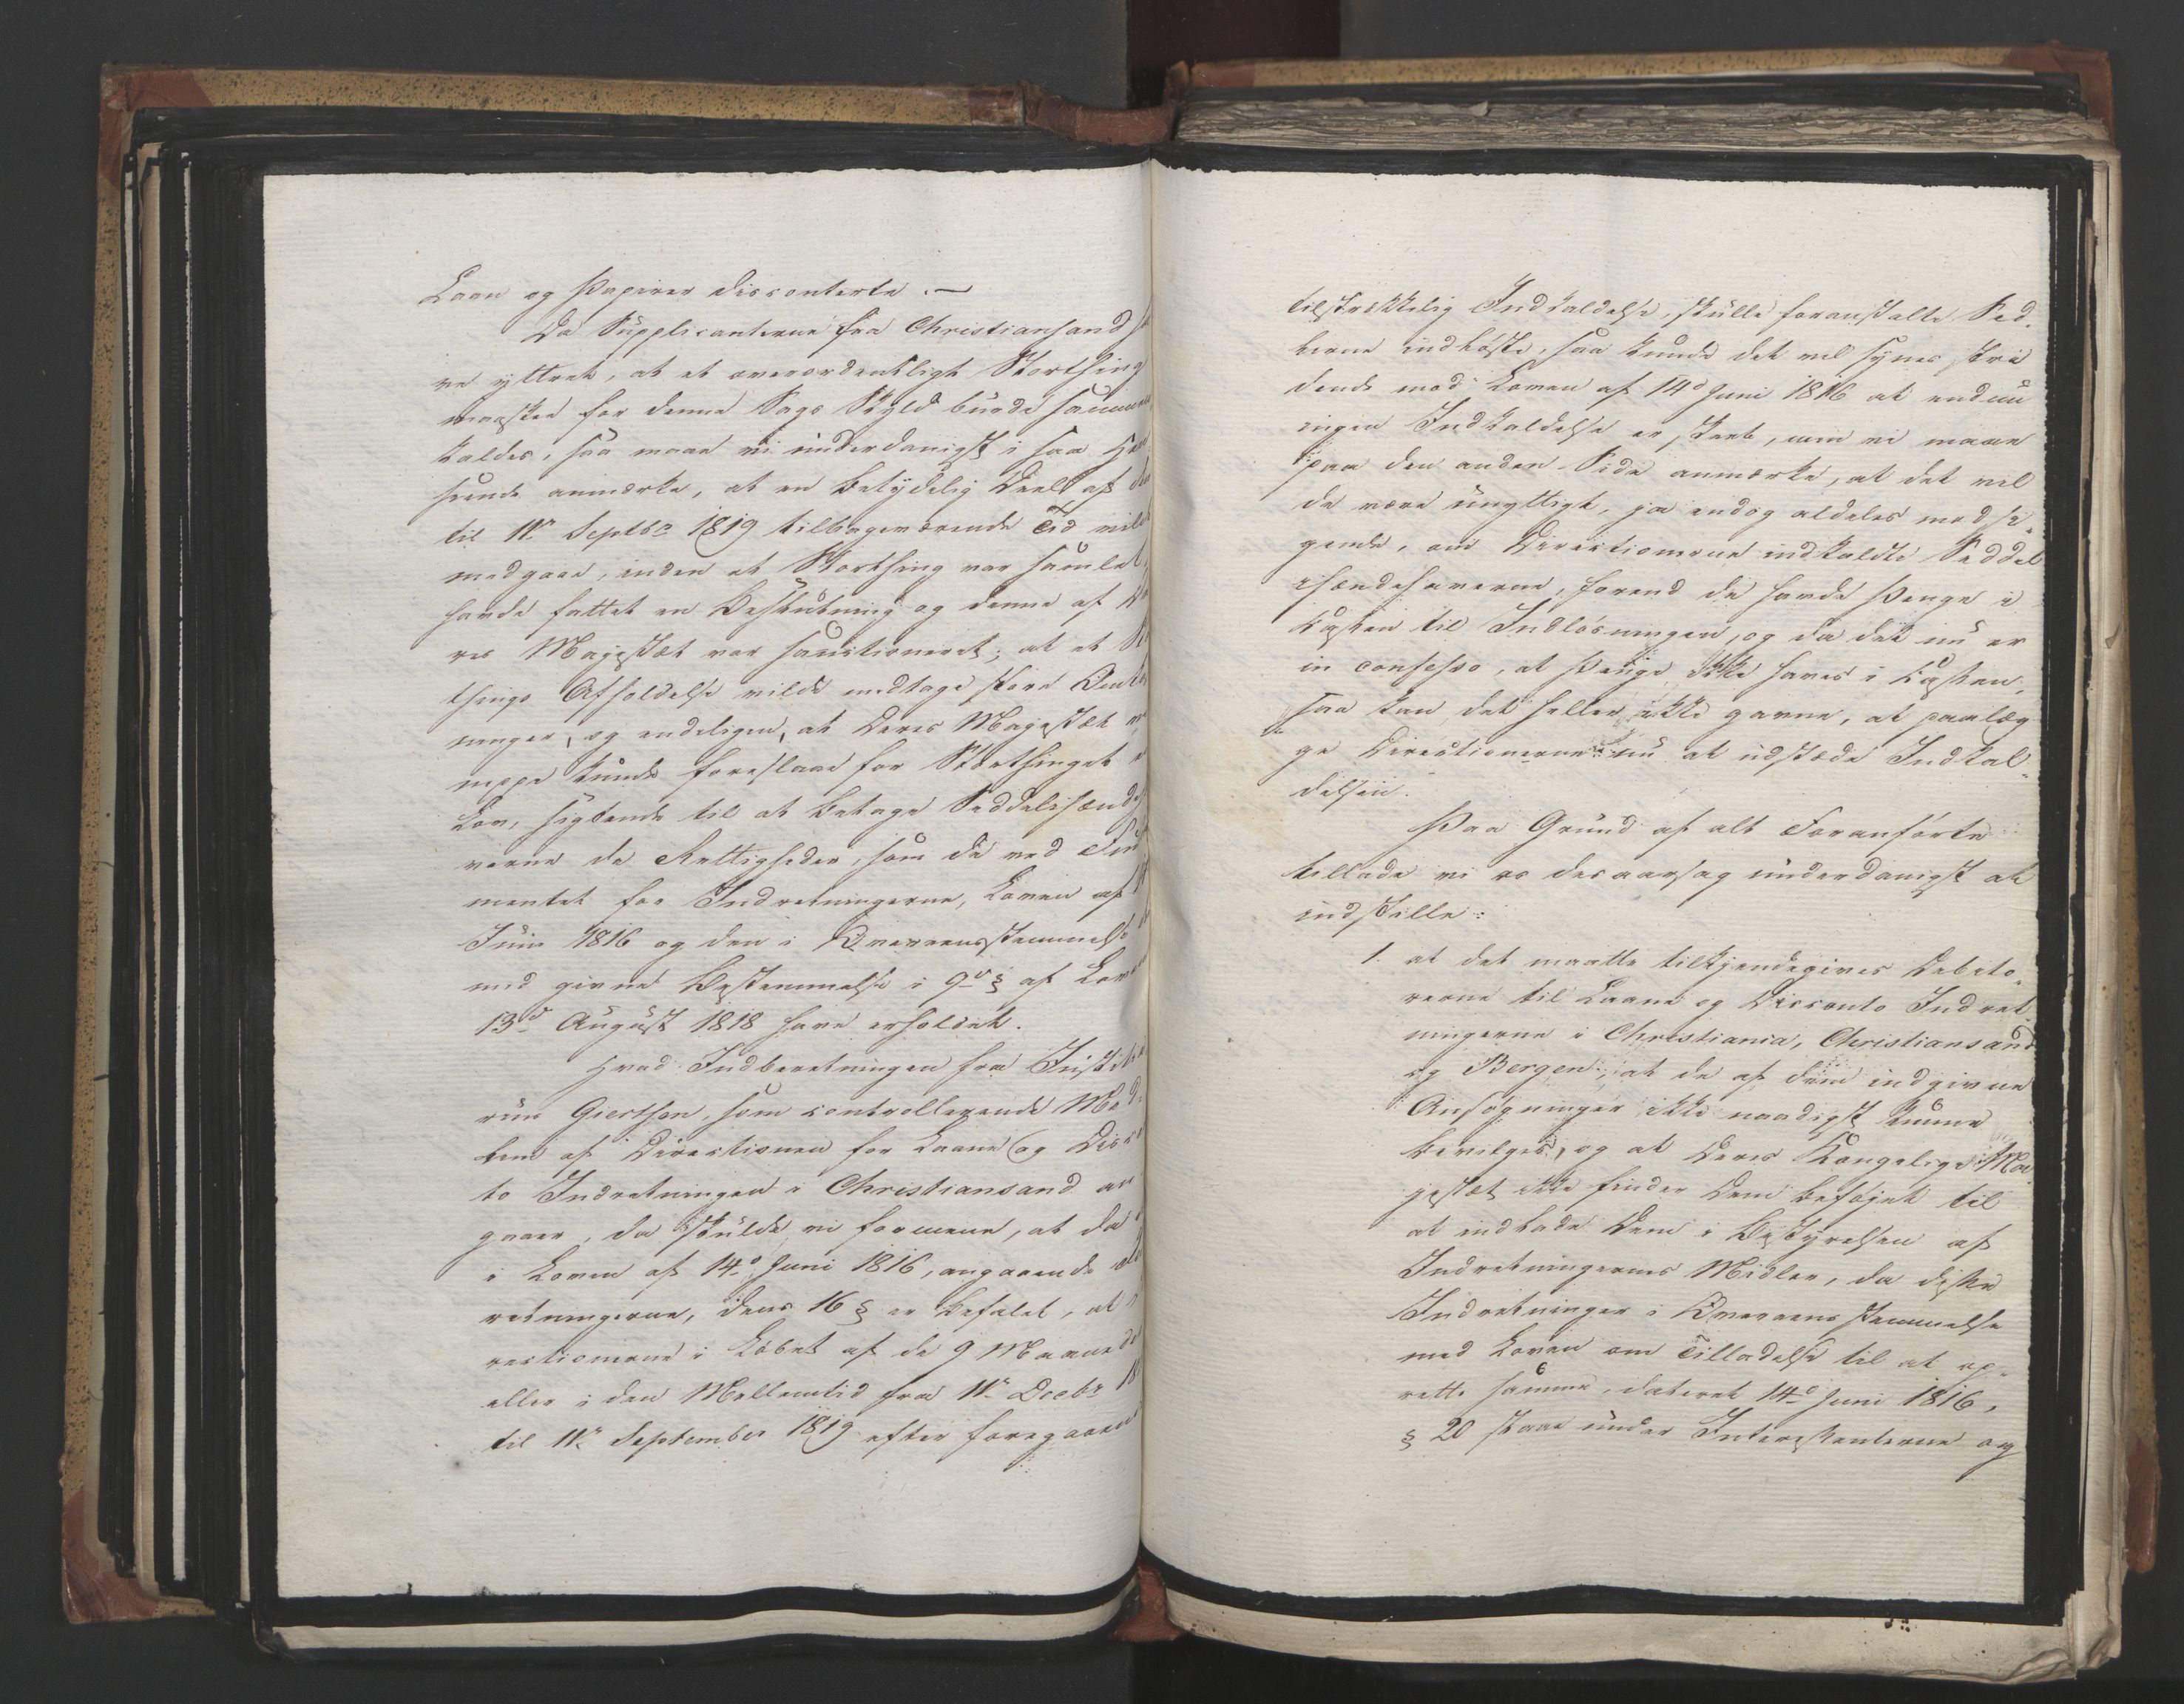 Laan og Papirer disconterte. —
Da Supplicanterne fra Christiansand ha
ve yttret, at et overordentligt Storthing
maaskee for denne Sags Skyld burde sammen
kaldes, saa maae vi underdanigst i saa Hen
seende anmærke, at en betydelig Deel af den
til 11te Septbr 1819 tilbageværende Tid vilde
medgaae, inden et Storthing var samlet,
havde fattet en Beslutning og denne af De
res Majestæt var sanctioneret; at et Stor
things Afholdelse vilde medtage store Omkost
ninger, og endeligen, at Deres Majestæt
neppe kunde foreslaae for Storthinget en
Lov, sigtende til at betage Seddelihændeha
verne de Rettigheder, som de ved Funda
mentet for Indretningerne, Loven af 14
Juni 1816 og den i Overeensstemmelse der
med givne Bestemmelse i 9de § af Loven
13de August 1818 have erholdet.
Hvad Indberetningen fra
Giertsen, som controllerende Med
lem af Directionen for Laane og Discon
to Indretningen i Christiansand an
gaaer, da skulde vi formene, at da
i Loven af 14de Juni 1816, angaaende Ind
retningerne, dens 16 § er befalet, at Di
rectionerne i Løbet af de 9 Maaneder
eller i den Mellemtid fra 11te Decbr 18
til 11te September 1819 efter foregaaende
tilstrækkelig Indkaldelse, skulle foranstalte Sed¬
lerne indløste, saa kunde det vel synes stri
dende mod Loven af 14de Juni 1816 at endnu
ingen Indkaldelse er skeet, men vi maae
paa den anden Side anmærke, at det vil
de være unyttigt, ja endog aldeles modsi¬
gende, om Directionerne indkaldte Seddel
ihændehaverne, førend de havde Penge i
Kassen til Indløsningen, og da det nu er
in confesso, at Penge ikke haves i Kassen,
saa kan det heller ikke gavne, at paalæg
ge Directionerne nu at udstæde Indkal¬
delsen.
Paa Grund af alt Foranførte
tillade vi os desaarsag underdanigst at
indstille:
1. at det maatte tilkjendegives Debito¬
rerne til Laane og Disconto Indret
ningerne i Christiania, Christiansand
og Bergen, at de af dem indgivne
Ansøgninger ikke naadigst kunne
bevilges, og at Deres Kongelige Ma
jestæt ikke finder Dem beføjet til
at indlade Dem i Bestyrelsen af
Indretningernes Midler, da disse
Indretninger i Overeensstemmelse
med Loven om Tilladelse til at op¬
rette samme, dateret 14de Juni 1816,
§ 20 staae under Interessenterne og